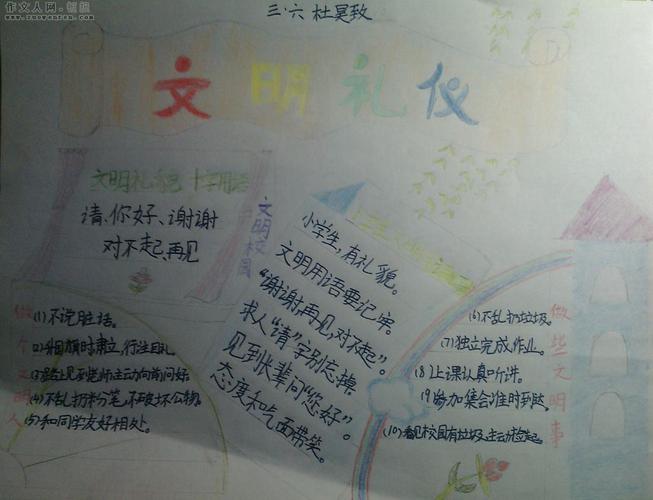 作文人网·组组
www.zuowenren.com
三·六 杜昊致
文明礼仪
文明礼貌 十字用语
请、你好、谢谢
对不起、再见
文明校园
小学生,有礼貌。
文明用语要记牢。
“谢谢,再见,对不起”。
求人“请”字别忘掉
见到长辈问“您好”。
态度和吃面带笑。
做个文明人
(1)不说脏话。
(2)升国旗时肃立,行注目礼。
(3)路上见到老师主动向前问好
(4)不乱扔粉笔,不破坏公物。
(5)和同学友好相处。
做些文明事
(6)不乱扔垃圾。
(7)独立完成作业。
(8)上课认真听讲。
(9)参加集会准时到达。
(10)看见校园有垃圾主动捡起。